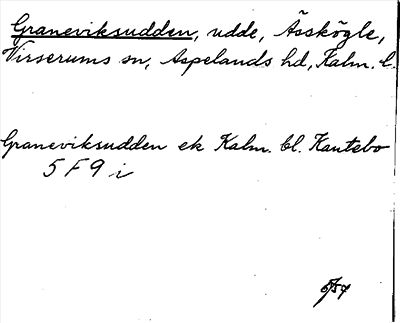 Graneviksudden, udde, Åsskögle,
Virserums sn, Aspelands hd, Kalm. l.
Graneviksudden ek Kalm. bl. Kantebo
5 F 9 i